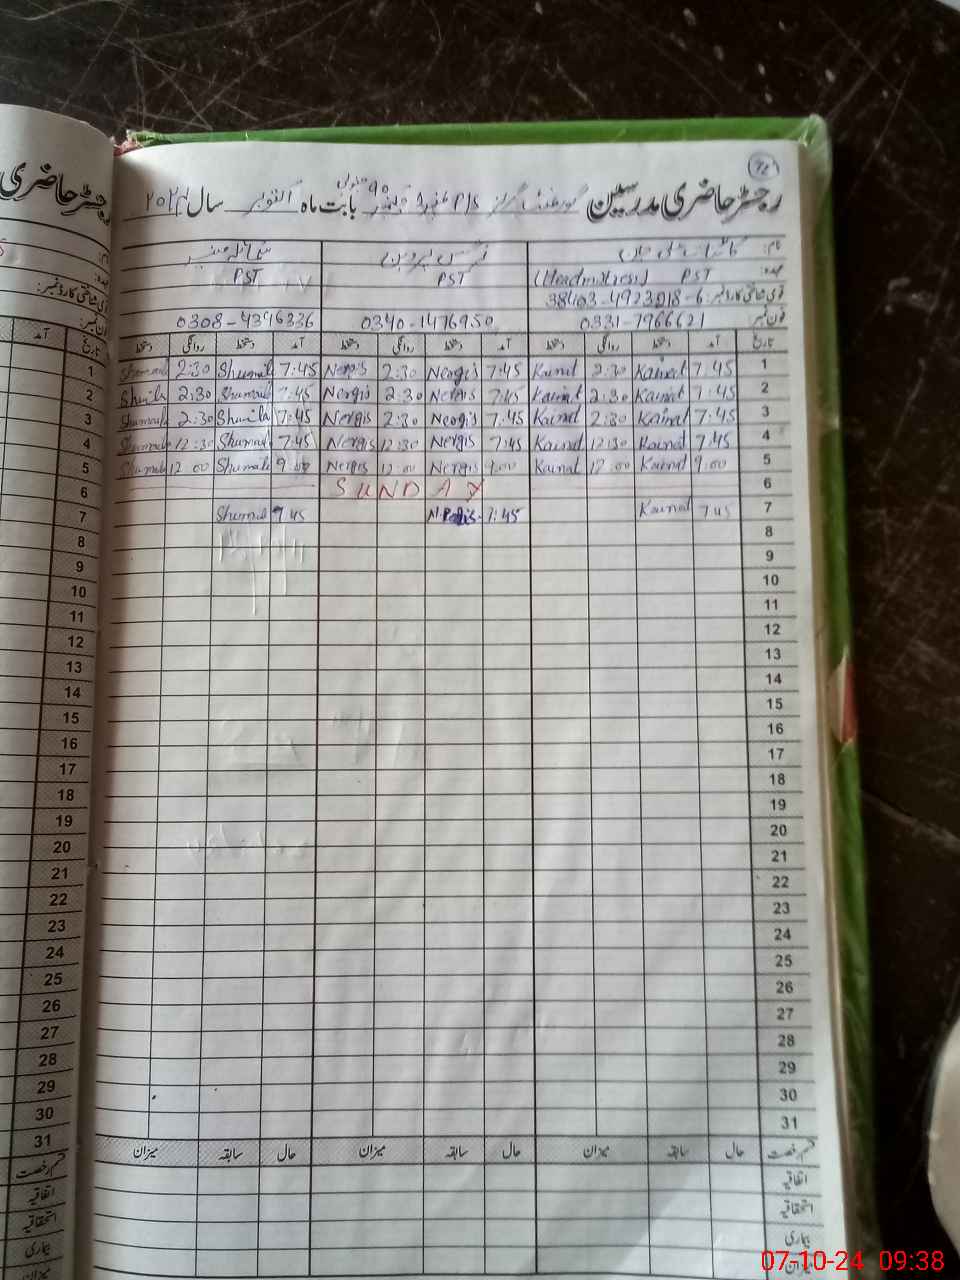 72
رجسٹر حاضری مدرسین گورنمنٹ گرلز P/S بابت ماہ اکتوبر سال ۲۰۲۴
رجسٹر حاضری
نام:
عہدہ: PST (Headmistress) PST PST
قومی شناختی کارڈ نمبر: 38403-4923018-6
فون نمبر: 0331-7966621 0340-1476950 0308-4396336
تاریخ آمد دستخط روانگی دستخط آمد دستخط روانگی دستخط آمد دستخط روانگی دستخط
1 7:45 Kainat 2:30 Kainat 7:45 Nergis 2:30 Nergis 7:45 Shumaila 2:30
2 7:45 Kainat 2:30 Kainat 7:45 Nergis 2:30 Nergis 7:45 Shumaila 2:30
3 7:45 Kainat 2:30 Kainat 7:45 Nergis 2:30 Nergis 7:45 Shumaila 2:30
4 7:45 Kainat 12:30 Kainat 7:45 Nergis 12:30 Nergis 7:45 Shumaila 12:30
5 9:00 Kainat 12:00 Kainat 9:00 Nergis 12:00 Nergis 9:00 Shumaila 12:00
6 SUNDAY
7 7:45 Kainat 7:45 Nergis 7:45
8
9
10
11
12
13
14
15
16
17
18
19
20
21
22
23
24
25
26
27
28
29
30
31
قسم رخصت حال سابقہ میزان حال سابقہ میزان حال سابقہ میزان
اتفاقیہ
استحقاقیہ
بیماری
میزان
تاریخ آمد
1
2
3
4
5
6
7
8
9
10
11
12
13
14
15
16
17
18
19
20
21
22
23
24
25
26
27
28
29
30
31
قسم رخصت
اتفاقیہ
استحقاقیہ
بیماری
میزان
07-10-24 09:38